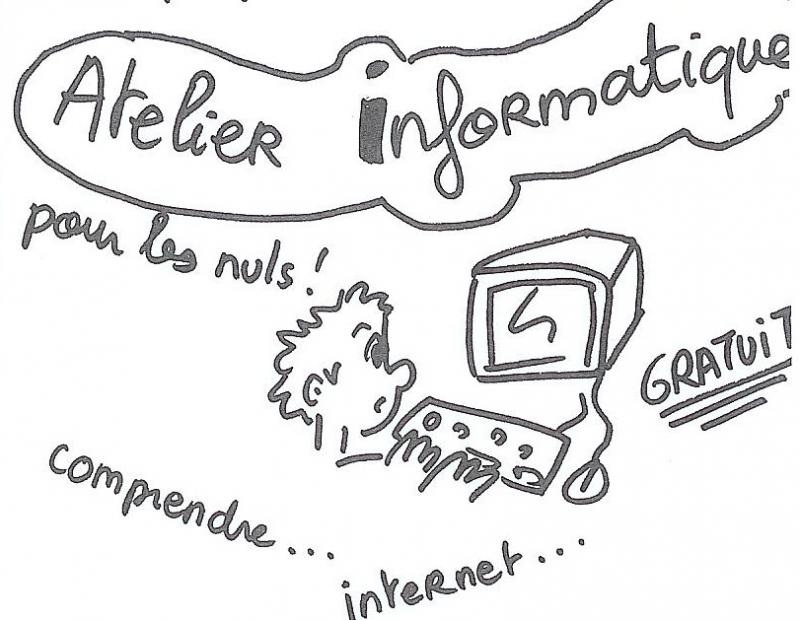 Atelier informatique
pour les nuls !
GRATUIT
comprendre...
internet...